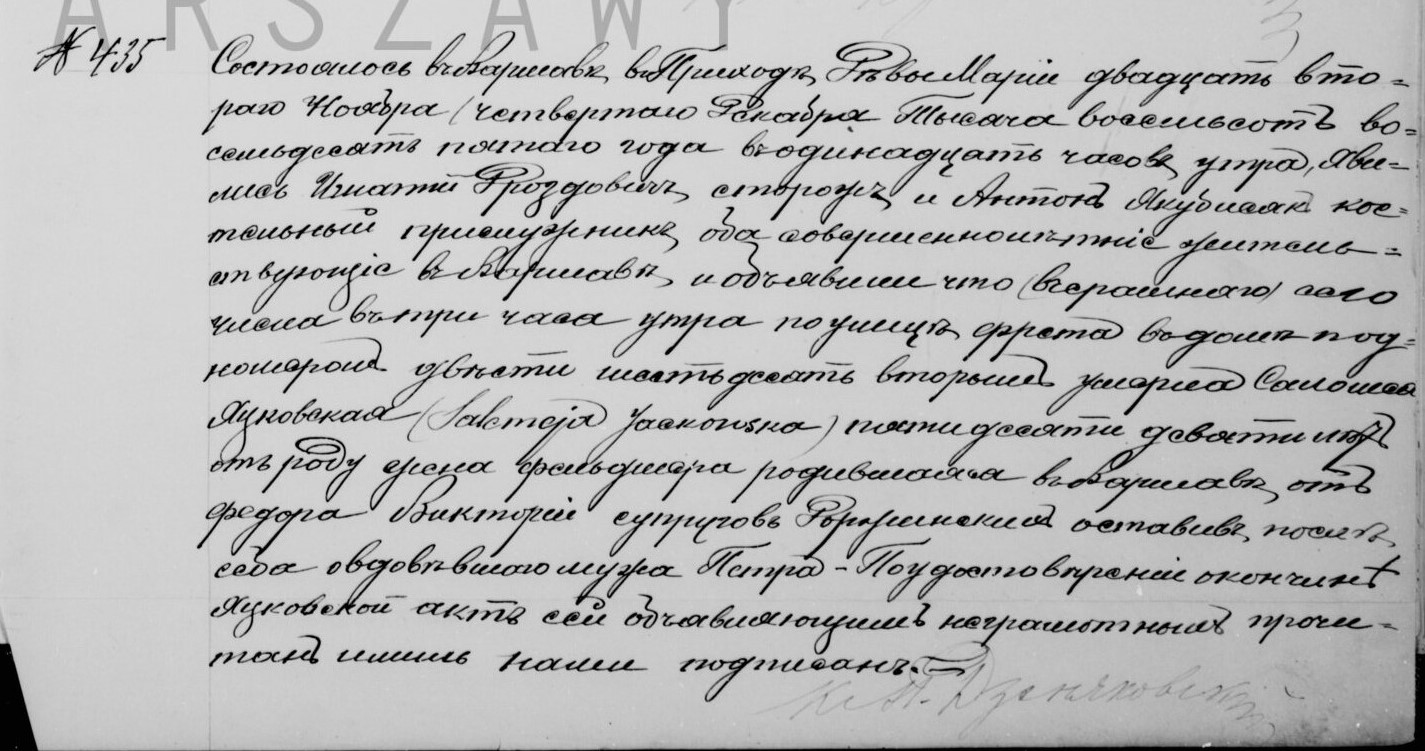 ARSZAWY
№ 435
Состоялось въ Варшавѣ, въ Приходѣ Дѣвы Маріи двадцать вто=
раго Ноября (четвертаго Декабря Тысяча восемьсотъ во=
семьдесятъ пятаго года въ одинадцать часовъ утра, Яви=
лись Игнатій Дроздовичъ, сторожъ, и Антонъ Якубисякъ кос=
тельный прислужникъ, оба совершеннолѣтніе житель=
ствующіе въ Варшавѣ, и объявили что (вчерашняго) сего
числа въ три часа утра по улицѣ Фрета въ домѣ под=
номеромъ двѣсти шестьдесятъ вторымъ умерла Саломея
Яцковская (Salomeja Jackowska) пятидесяти девяти лѣтъ
отъ роду жена фельдшера родившаяся въ Варшавѣ, отъ
Федора Викторіи супруговъ оставивъ послѣ
себя овдовѣвшаго мужа Петра - По удостовѣреніи о кончинѣ
Яцковской актъ сей объявляющимъ неграмотнымъ прочи=
танъ нами подписанъ. =